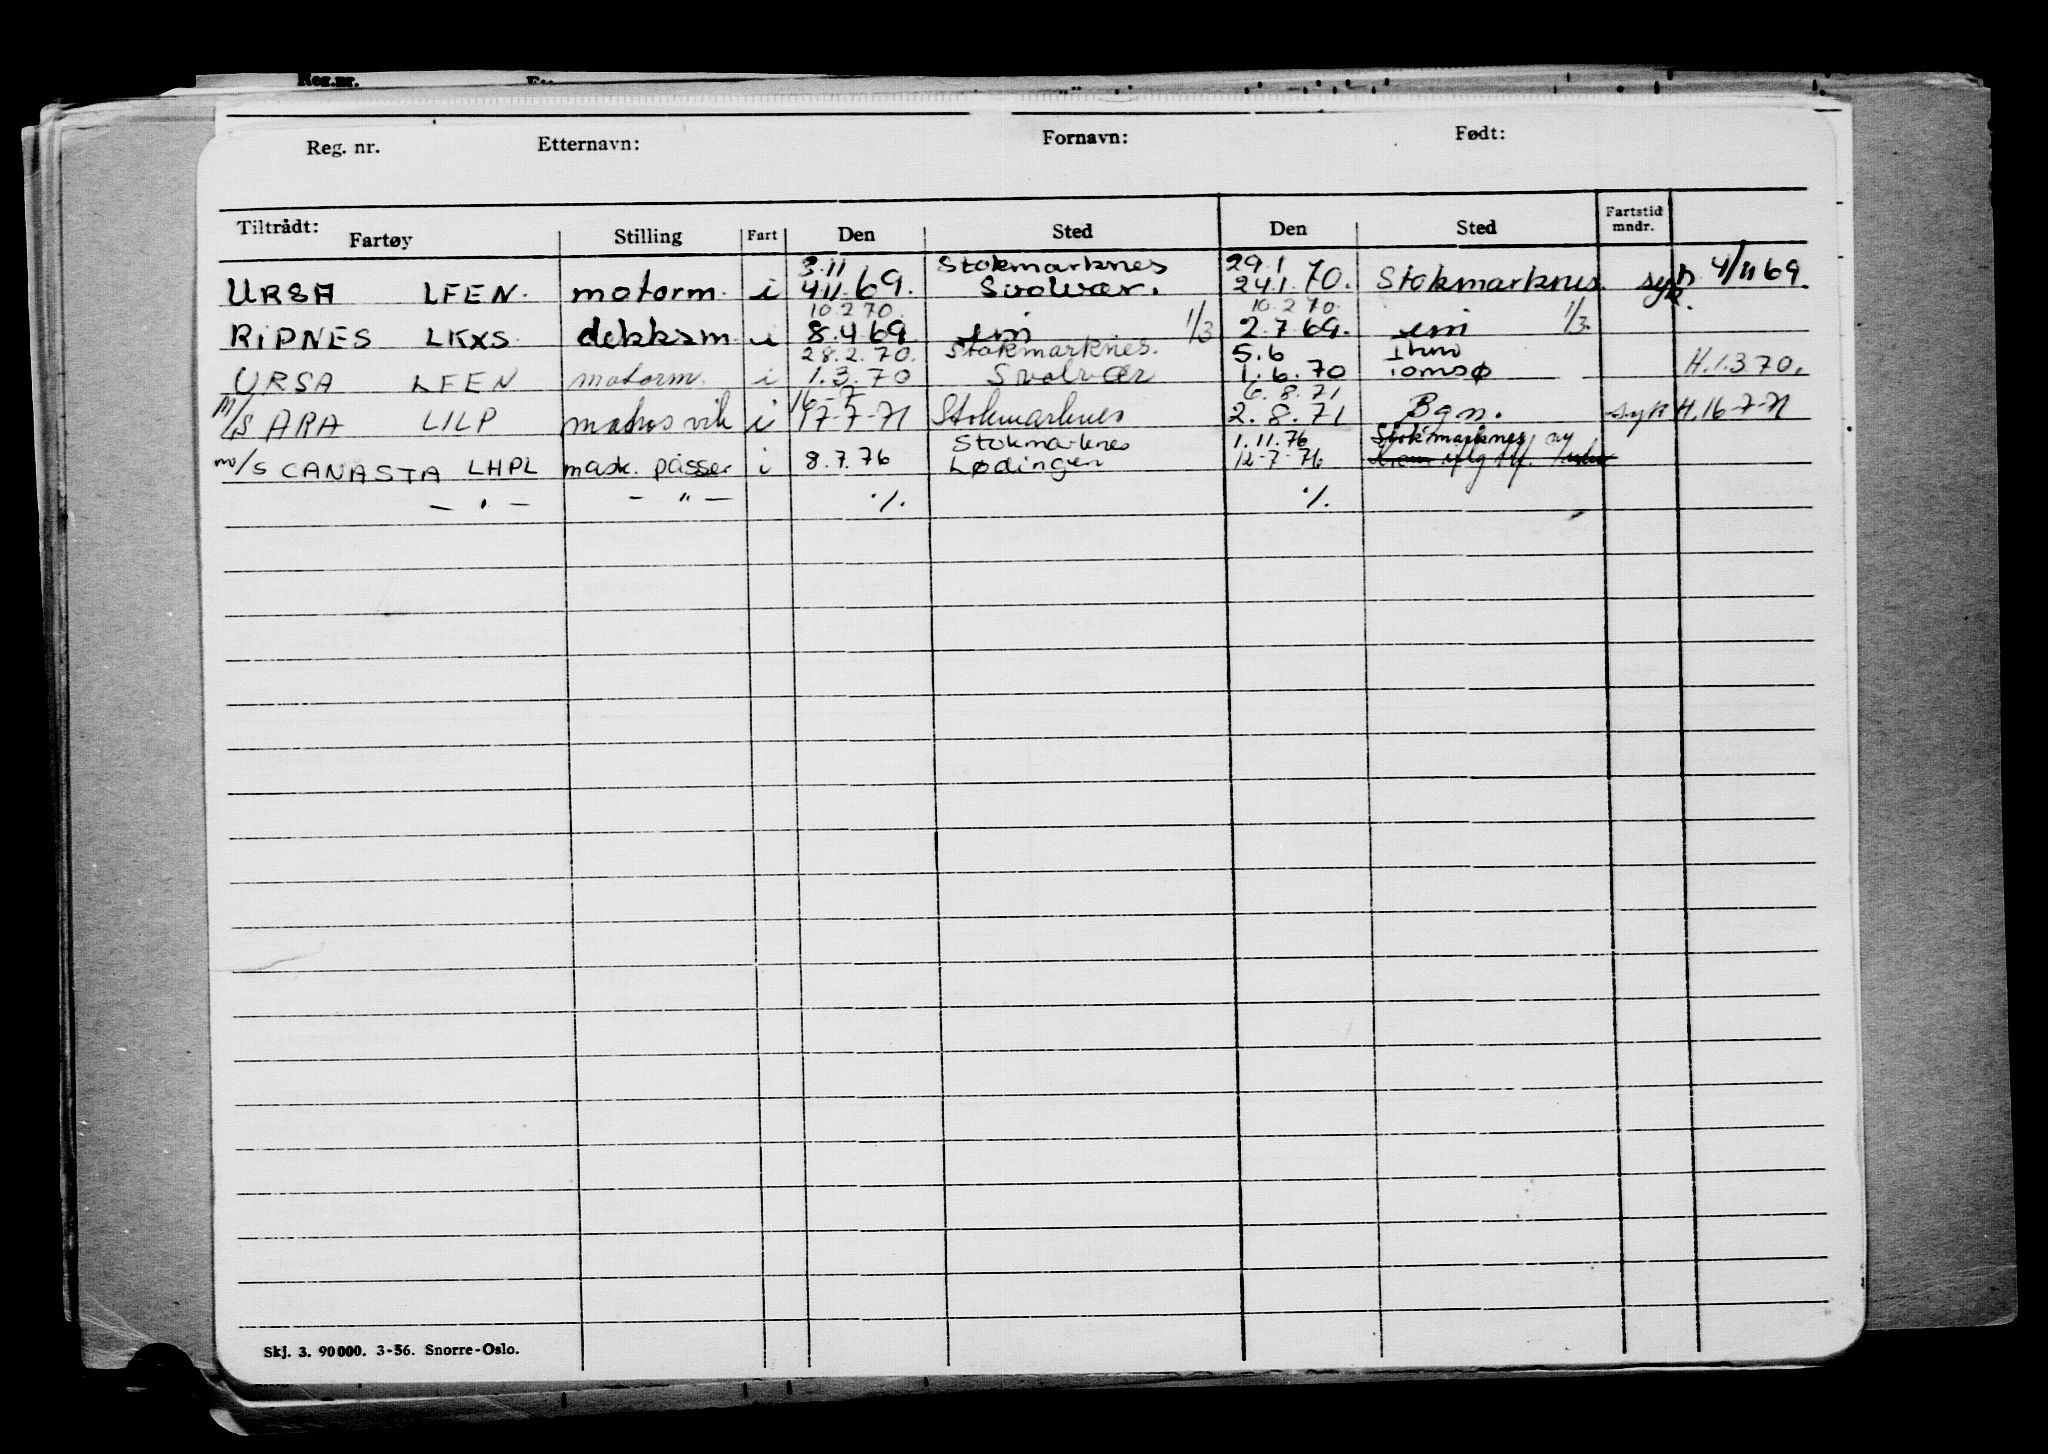 Reg.nr.
Reg. nr. Etternavn: Fornavn: Født:
Tiltrådt: Fartøy Stilling Fart Den Sted Den Sted Fartstid mndr.
3.11 Stokmarknes 29.1
URSA LFEN. motorm. i 4.11.69. Svolvær. 24.1.70. Stokmarknes syk 4/11 69.
10.2.70. 10.2.70.
RIPNES LKXS. dekksm i 8.4.69 1/3 2.7.69. 1/3.
28.2.70. Stokmarknes. 5.6
URSA LFEN motorm. i 1.3.70 Svolvær 1.6.70 Tomsø H.1.3 70.
16-7- 6.8.71
M/S ARA LILP matros vik i 17-7-71 Stokmarknes 2.8.71 Bgn. syk H.16-7-71
Stokmarknes 1.11.76 Stokmarknes
m/S CANASTA LHPL mask. passer i 8.7.76 Lødingen 12-7-76 iflg
— " — — " — ./. ./.
Skj. 3. 90000. 3-56. Snorre-Oslo.